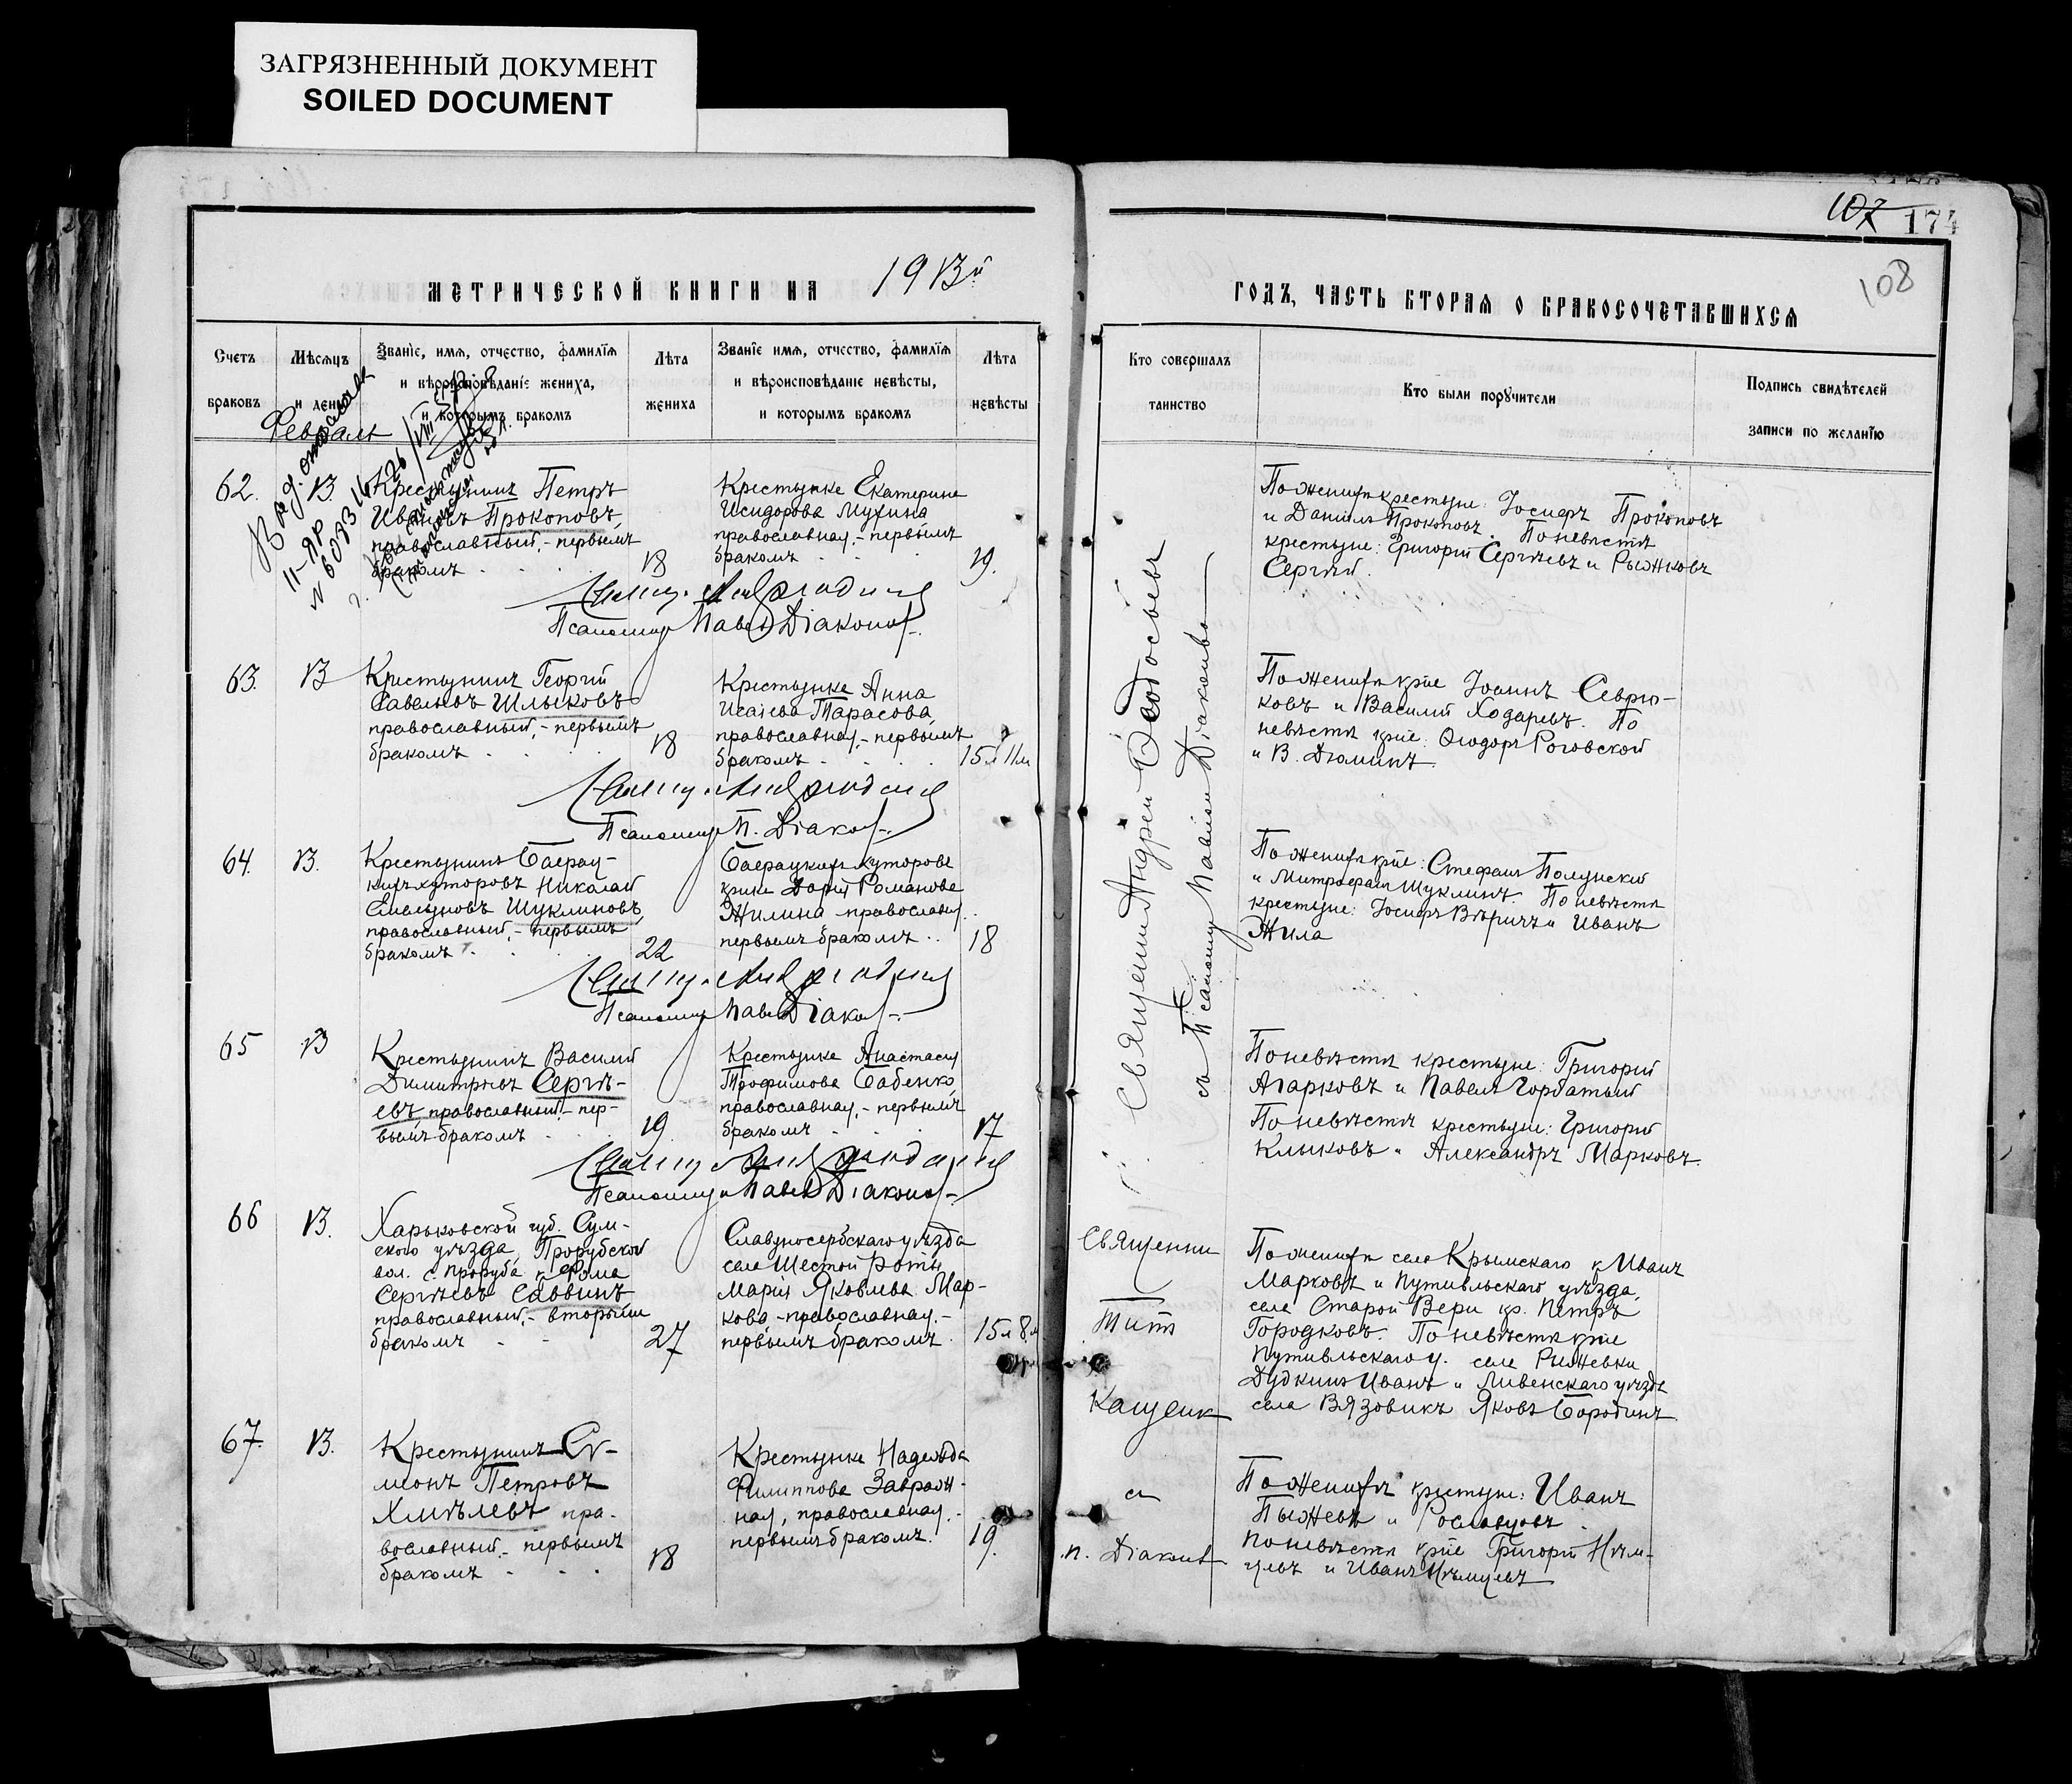 ЗАГРЯЗНЕННЫЙ ДОКУМЕНТ
SOILED DOCUMENT
МЕТРИЧЕСКОЙ КНИГИ НА 1913й
Счетъ браковъ
Мѣсяцъ и день
Званіе, имя, отчество, фамилія
и вѣроисповѣданіе жениха,
и которымъ бракомъ
Лѣта
жениха
Званіе имя, отчество, фамилія
и вѣроисповѣданіе невѣсты,
и которымъ бракомъ
Лѣта
невѣсты
Февраль
62. 13
Крестьянинъ Петръ
Ивановъ Прокоповъ,
православный, - первымъ
бракомъ
18
Крестьянка Екатерина
Исидорова Мухина
православная, - первымъ
бракомъ
19.
Псаломщ Павел Діаконов
63. 13
Крестьянинъ Георгій
Савельевъ Шлыковъ
православный, - первымъ
бракомъ
18
Крестьянка Анна
Исаіева Тарасова,
православная, - первымъ
бракомъ
15 л 11 м
Псаломщ П. Діаков
64. 13.
Крестьянинъ Баерац-
кихъ хуторовъ Николай
Емельяновъ Шуклиновъ,
православный, - первымъ
бракомъ
22
Баерацкихъ хуторовъ
Дарія Романова
Жилина - православная
первымъ бракомъ
18
Псаломщ Павел Діаков
65 13
Крестьянинъ Василій
Димитріевъ Сергѣ-
евъ, православный - пер-
вымъ бракомъ
19
Крестьянка Анастасія
Трофимова Бабенко,
православная, - первымъ
бракомъ
17
Псаломщ Павел Діаконов
66 13.
Харьковской губ. Сум-
скаго уѣзда, Прорубской
вол. с. Проруба к Фома
Сергѣевъ Саввинъ
православный, - вторымъ
бракомъ
27
Славяносербскаго уѣзда
села Шестой Роты
Марія Яковлева Мар-
кова, - православная, -
первымъ бракомъ
15 л 8 м
67. 13.
Крестьянинъ Си-
меонъ Петровъ
Хмѣлевъ пра-
вославный - первымъ
бракомъ
18
Крестьянка Надежда
Филиппова Завраж-
ная, православная, -
первымъ бракомъ.
19.
107 174
108
ГОДЪ, ЧАСТЬ ВТОРАЯ О БРАКОСОЧЕТАВШИХСЯ
Кто совершалъ
таинство
Кто были поручители
Подпись свидѣтелей
записи по желанію
Священник Андрей Ѳеодосьевъ
съ Псаломщ Павломъ Діаконовы
По женихѣ крестьяне: Іосифъ Прокоповъ
и Даніилъ Прокоповъ. По невѣстѣ
крестьяне: Григорій Сергѣевъ и Рыжковъ
Сергѣй.
По женихѣ кр-не Іоаннъ Севрю-
ковъ и Василій Ходаревъ. По
невѣстѣ кр-не: Ѳеодоръ Роговской
и В. Дюминъ.
По женихѣ кр-не: Стефанъ Полунскій
и Митрофанъ Шуклинъ. По невѣстѣ
крестьяне: Іосифъ Вѣричъ и Иванъ
Жила
По невѣстѣ крестьяне: Григорій
Агарковъ и Павелъ Горбатый
По невѣстѣ крестьяне: Григорій
Клыковъ и Александръ Марковъ.
Священник
Титъ
Кащенк
съ
п. Діаконов
По женихѣ села Крымскаго к Иванъ
Марковъ и Путивльскаго уѣзда,
села Старой Вери кр. Петръ
Городковъ. По невѣстѣ кр-не
Путивльскаго у. села Рыжевки
Дудкинъ Иванъ и Ливенскаго уѣзда
села Вязовикъ Яковъ Бородинъ.
По женихѣ крестьяне: Иванъ
Пыжевъ и Рославцовъ.
По невѣстѣ кр-не Григорій Нѣм-
цевъ и Иванъ Нѣмцевъ